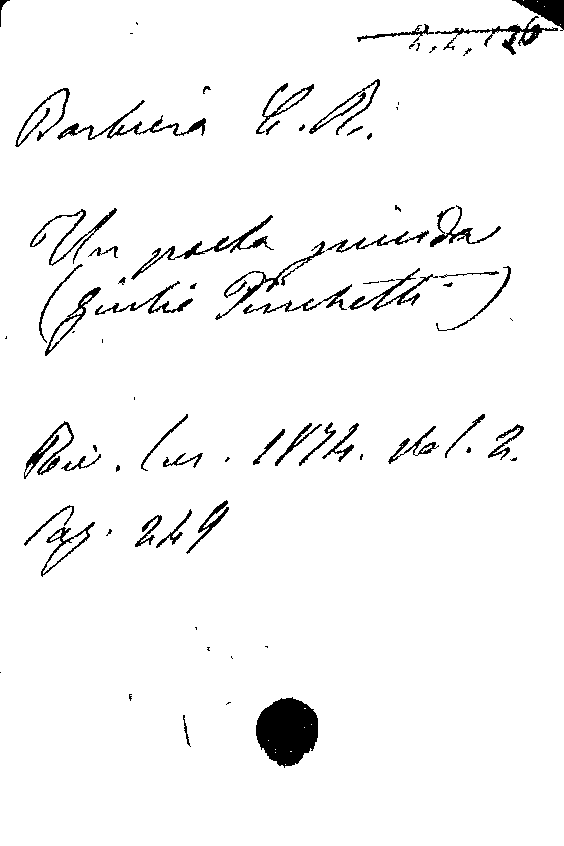 2.2.126
Barbiera C. R.
Un poeta suicida
(Giulio Pinchetti)
Riv. Eur. 1874. Vol. 2.
Pag. 249